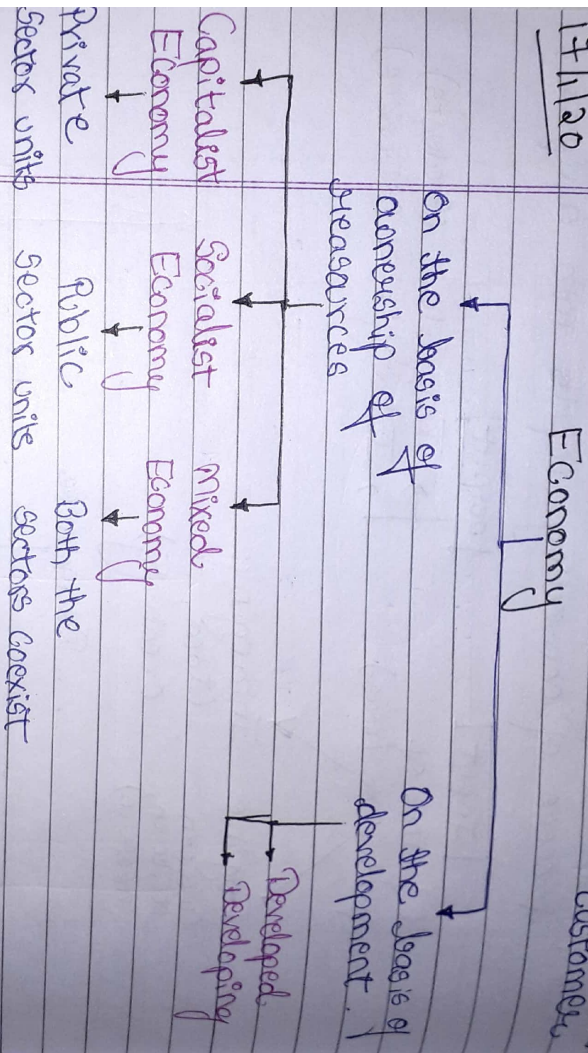 17/1/20
Customer
Economy
On the basis of
ownership of
reasources
On the basis of
development.
Capitalist
Economy
Socialist
Economy
Mixed
Economy
Developed
Developing
Private
sector units
Public
sector units
Both the
sectors coexist